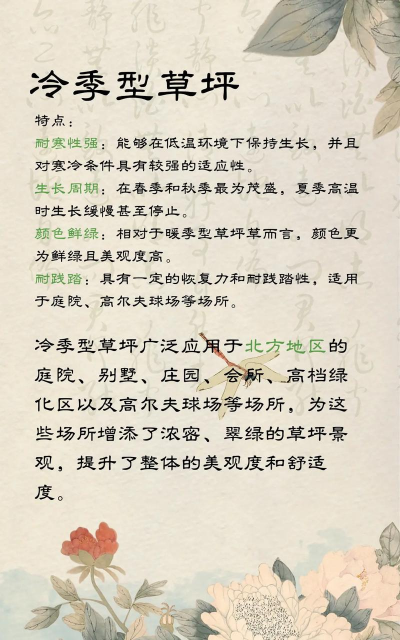 冷季型草坪
特点：
耐寒性强：能够在低温环境下保持生长，并且
对寒冷条件具有较强的适应性。
生长周期：在春季和秋季最为茂盛，夏季高温
时生长缓慢甚至停止。
颜色鲜绿：相对于暖季型草坪草而言，颜色更
为鲜绿且美观度高。
耐践踏：具有一定的恢复力和耐践踏性，适用
于庭院、高尔夫球场等场所。
冷季型草坪广泛应用于北方地区的
庭院、别墅、庄园、会所、高档绿
化区以及高尔夫球场等场所，为这
些场所增添了浓密、翠绿的草坪景
观，提升了整体的美观度和舒适
度。